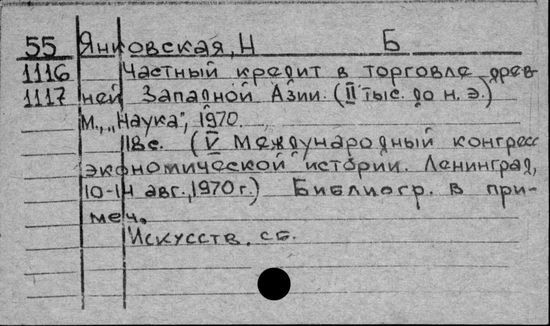 55 Янковская, Н Б
1116 Частный кредит в торговле древ
1117 ней Западной Азии. (II тыс. до н. э.)
М., "Наука", 1970.
118с. (V Международный конгресс
экономической истории. Ленинград,
10-14 авг., 1970 г.) Библиогр. в при-
меч.
Искусств. сб.